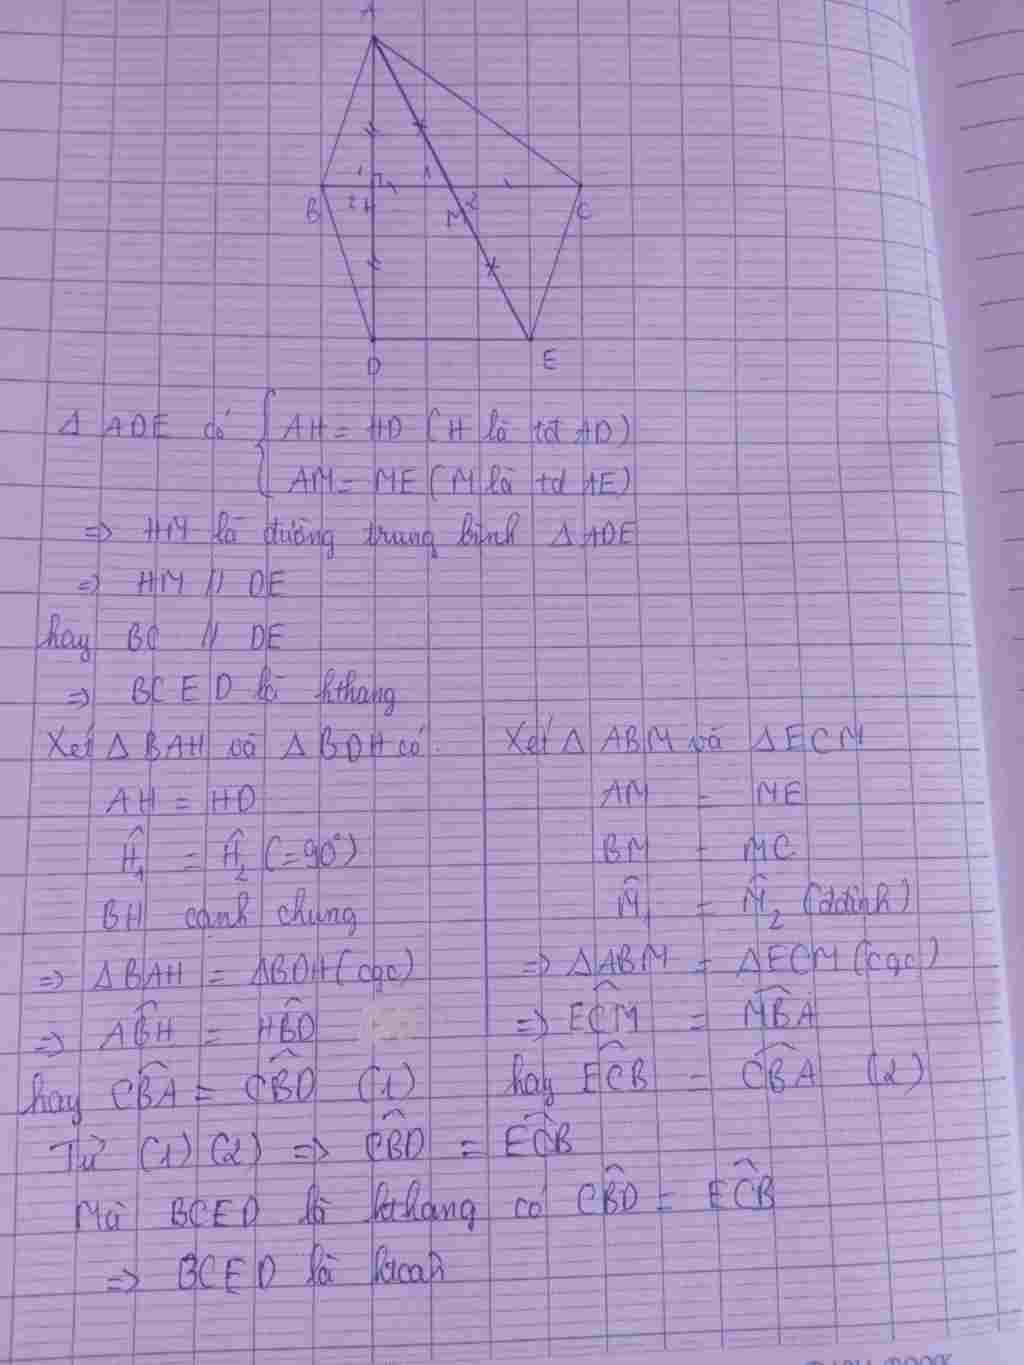 A
B
H
M
C
D
E
Δ ADE có { AH = HD (H là tđ AD)
AM = ME (M là td AE)
=> HM là đường trung bình Δ ADE
=> HM // DE
hay BC // DE
=> BCED là hthang
Xét Δ BAH và Δ BDH có
AH = HD
Ĥ₁ = Ĥ₂ (=90°)
BH cạnh chung
=> ΔBAH = ΔBDH (cgc)
=> AB̂H = HB̂D
hay CB̂A = CB̂D (1)
Xét Δ ABM và ΔECM
AM = ME
BM = MC
M̂₁ = M̂₂ (đđỉnh)
=> ΔABM = ΔECM (cgc)
=> EĈM = MB̂A
hay EĈB = CB̂A (2)
Từ (1) (2) => CB̂D = EĈB
Mà BCED là hthang có CB̂D = EĈB
=> BCED là htcan